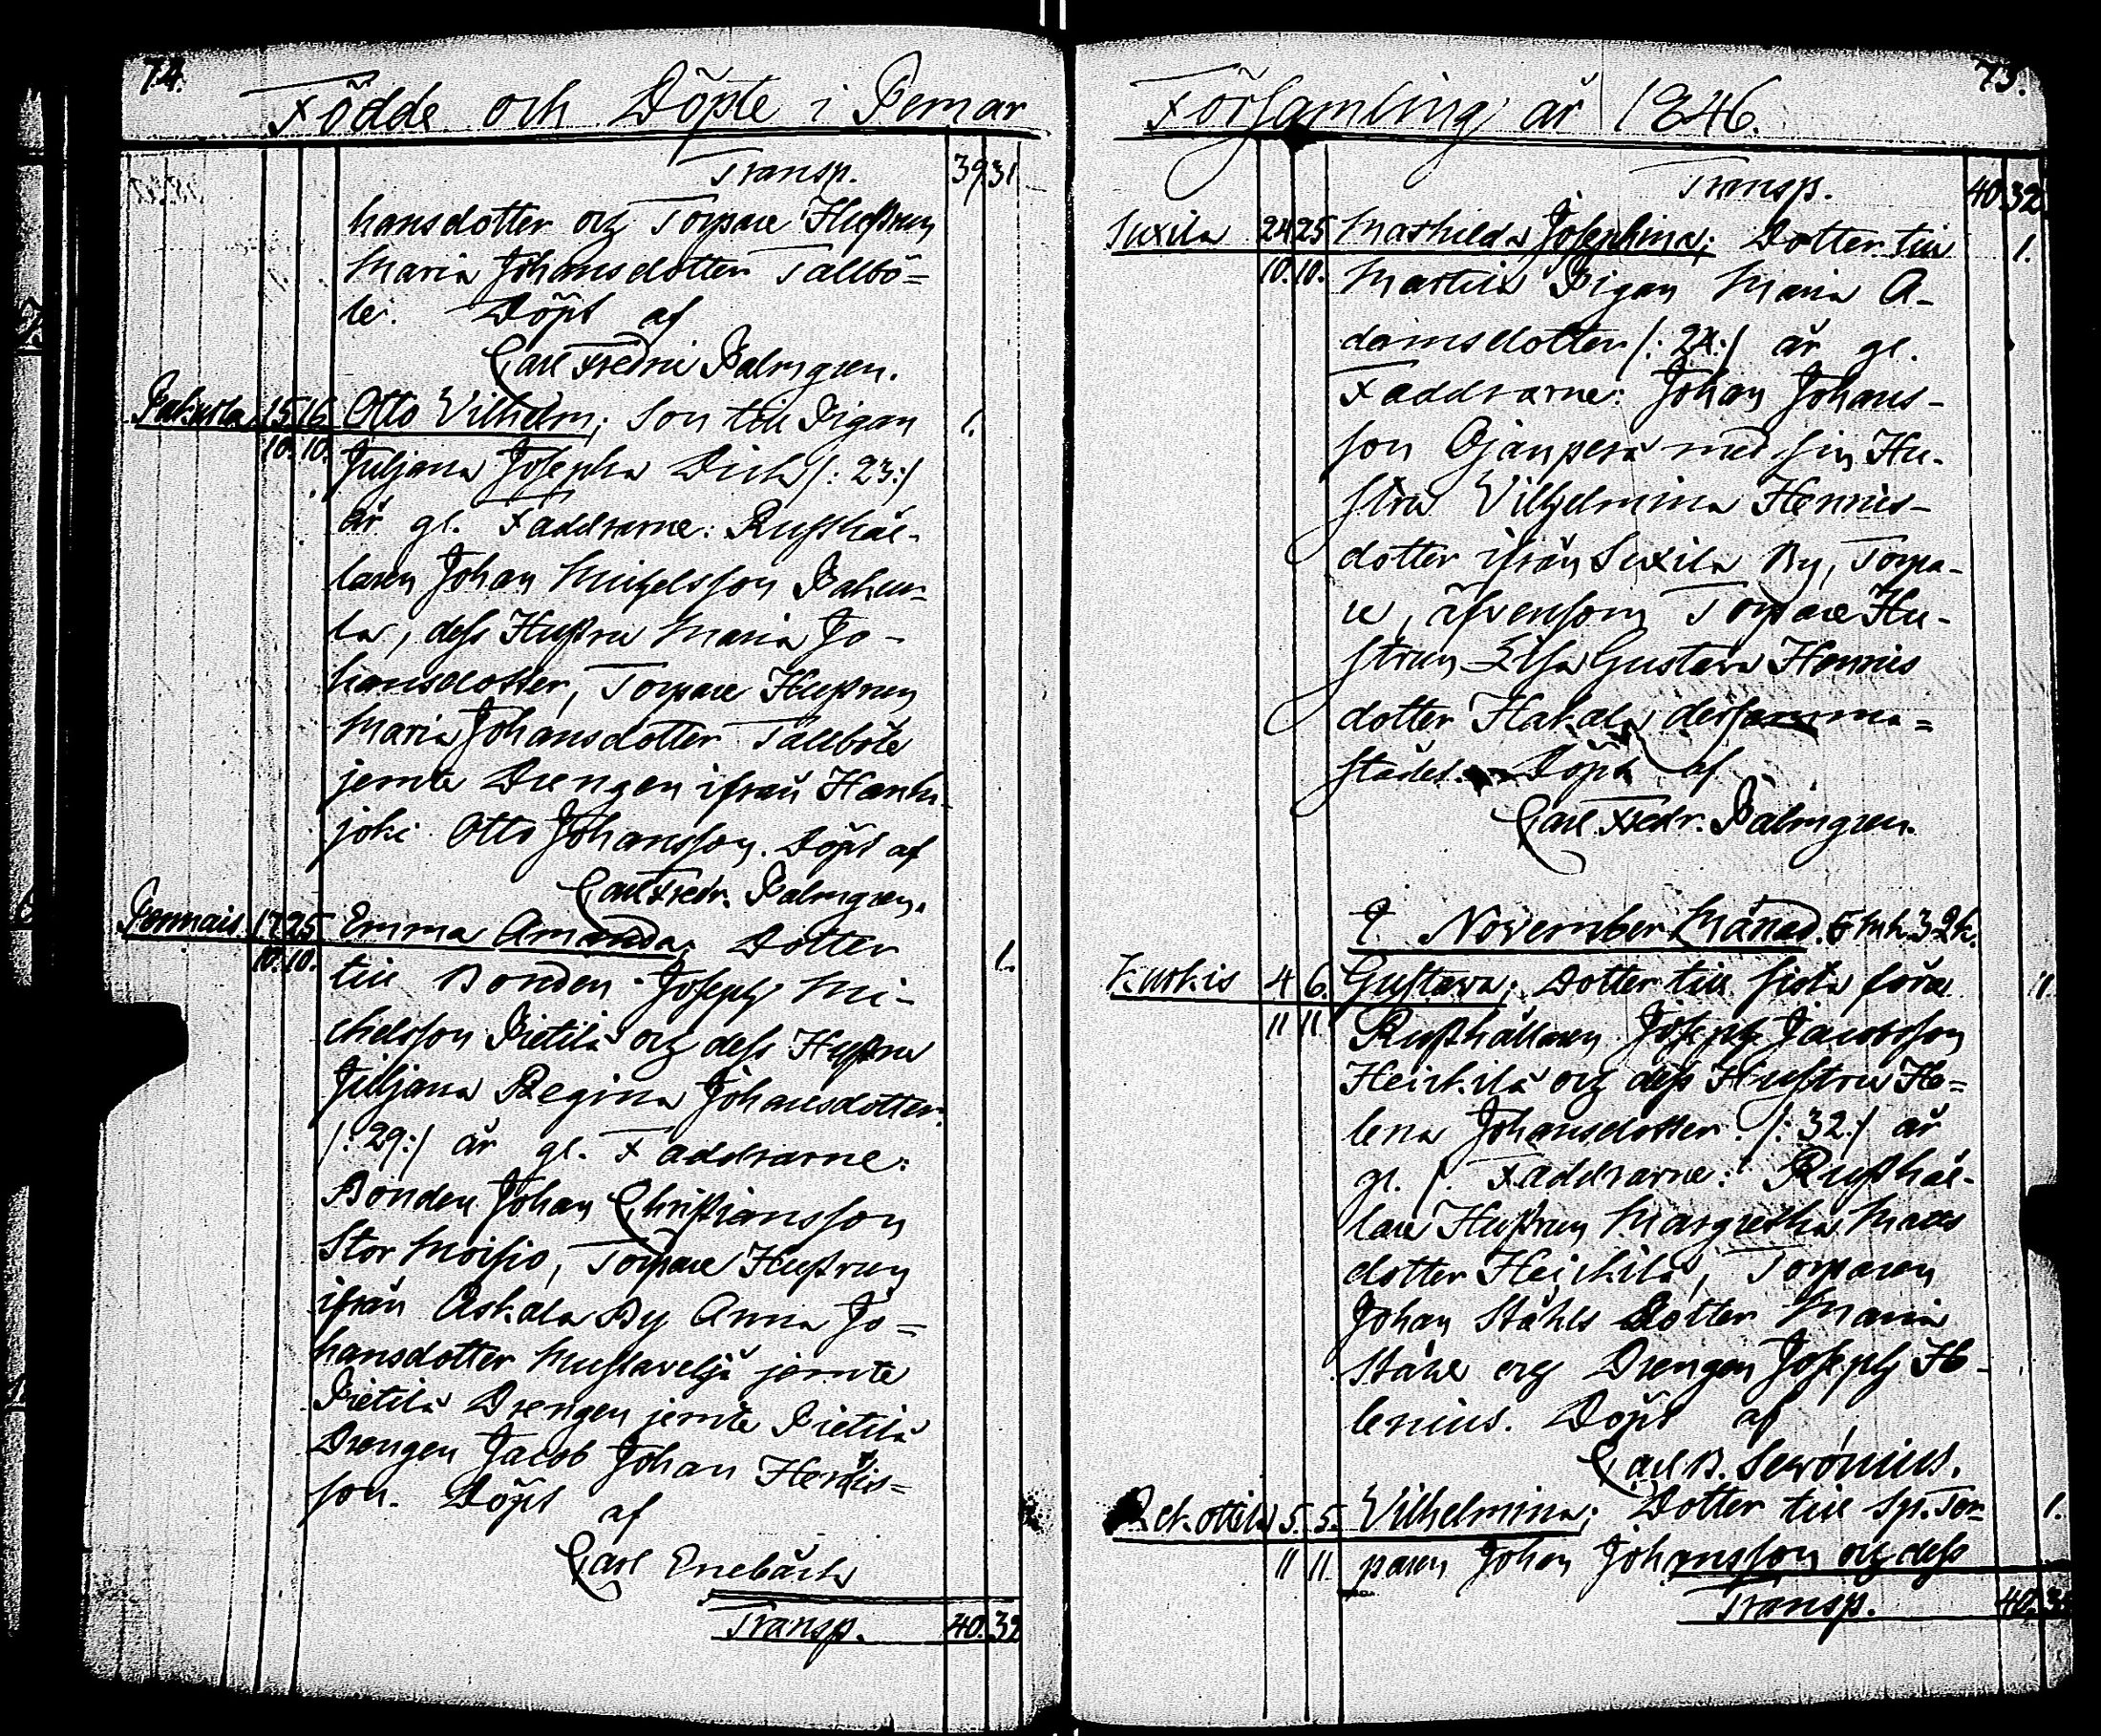 74.
Födde och Döpte i Pemar
Transp. 39 31
hansdotter och Torpare Hustrun
Maria Johansdotter Tallbö=
le. Döpt af
Carl Fredric Palmgren.
Pakurla 15 16 Otto Vilhelm; Son till Pigan 1.
10. 10. Juljana Josepha Dick /: 23:/
år gl. Faddrarne: Rusthål-
laren Johan Michelsson Pakur-
la, dess Hustru Maria Jo-
hansdotter, Torpare Hustrun
Maria Johansdotter Tallböle
jemte Drengen ifrån Hanhi-
joki Otto Johansson. Döpt af
Carl Fredr. Palmgren.
Pemais 17 25 Emma Amanda; Dotter 1.
10. 10. till Bonden Joseph Mi-
chelsson Pietilä och dess Hustru
Juljana Regina Johansdotter
/: 29:/ år gl. Faddrarne:
Bonden Johan Christiansson
Stor Moisio, Torpare Hustrun
ifrån Askala By Anna Jo=
hansdotter Mustaveljä jemte
Pietilä Drengen jemte Pietilä
Drengen Jacob Johan Henris=
son. Döpt af
Carl Enebäck
Transp. 40. 32
75.
Församling år 1846.
Transp. 40 32.
Suxila 24 25 Mathilda Josephina; Dotter till 1.
10. 10. Martila Pigan Maria A-
damsdotter /: 24:/ år gl.
Faddrarne: Johan Johans-
son Ojanperä med sin Hu-
stru Vilhjelmina Henrics-
dotter ifrån Suxila By, Torpa-
re, äfvensom Torpare Hu-
strun Elsa Gustava Henrics
dotter Hakala dersamma=
städes. Döpt af
Carl Fredr. Palmgren.
November Månad. 5 mk. 32 k.
Kurkis 4 6. Gustava; Dotter till sista före 1
11 11 Rusthållaren Joseph Jacobsson
Heickilä och dess Hustru He=
lena Johansdotter. /: 32:/ år
gl. Faddrarne: Rusthål-
lare Hustrun Margretha Matts
dotter Heickilä, Torparen
Johan Ståhls dotter Maria
Ståhl och Drengen Joseph He-
lenius. Döpt af
Carl B. Serónius.
Rekottila 5. 5. Vilhelmina; Dotter till Sp. Tor- 1.
11 11. paren Johan Johansson och dess
Transp. 40.